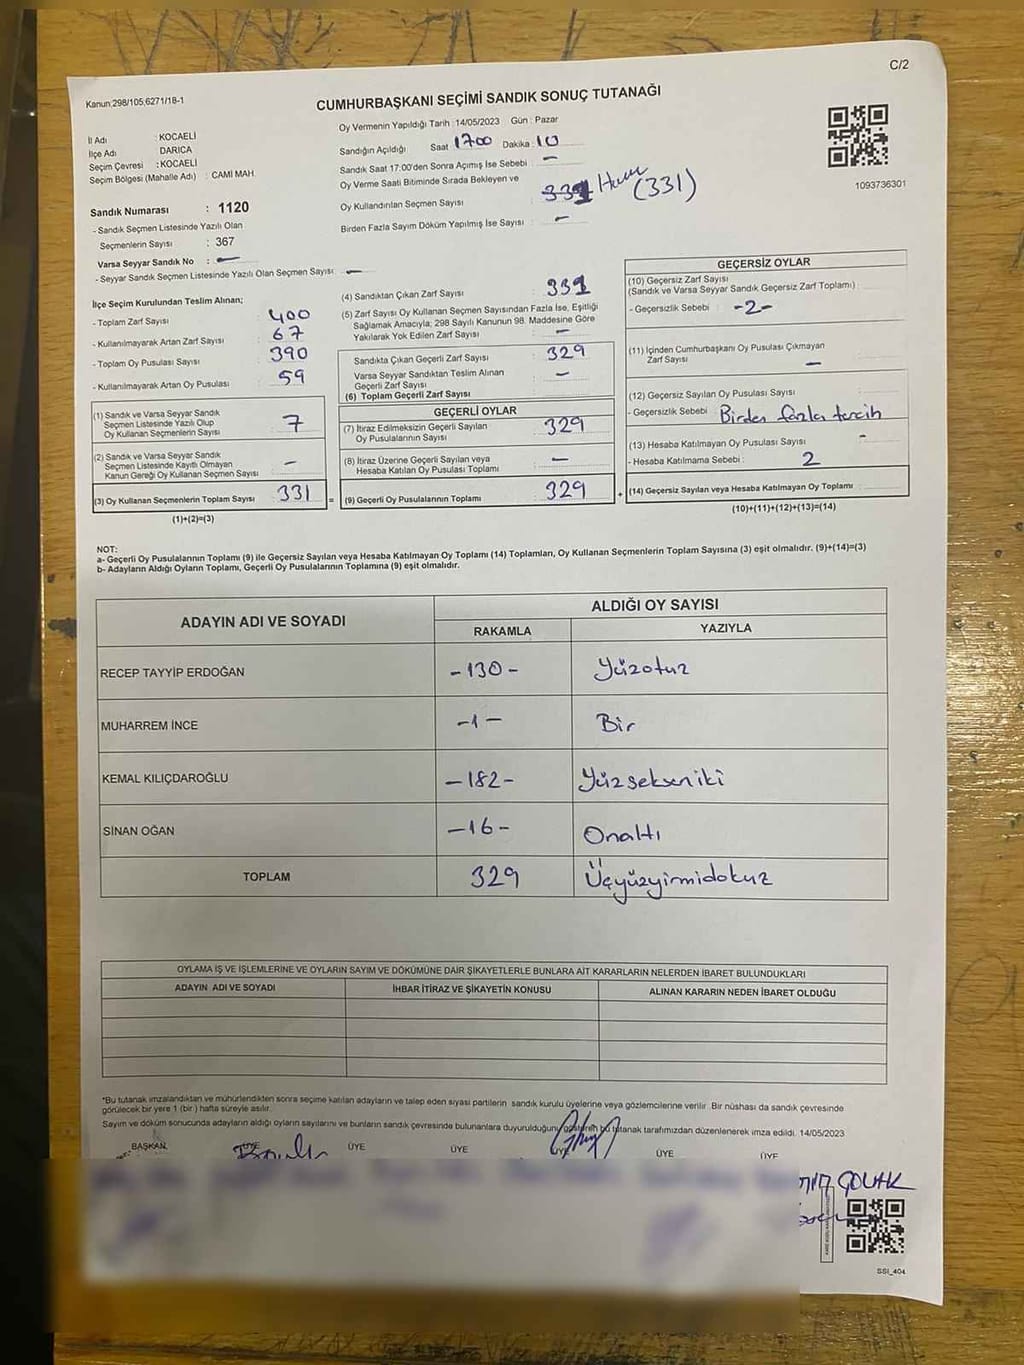 C/2
Kanun;298/105,6271/18-1
CUMHURBAŞKANI SEÇİMİ SANDIK SONUÇ TUTANAĞI
İl Adı : KOCAELİ
İlçe Adı DARICA
Seçim Çevresi : KOCAELİ
Seçim Bölgesi (Mahalle Adı) : CAMİ MAH.
Sandık Numarası : 1120
- Sandık Seçmen Listesinde Yazılı Olan
Seçmenlerin Sayısı : 367
Varsa Seyyar Sandık No : -
- Seyyar Sandık Seçmen Listesinde Yazılı Olan Seçmen Sayısı: -
Oy Vermenin Yapıldığı Tarih : 14/05/2023 Gün : Pazar
Sandığın Açıldığı Saat 1700 Dakika : 10
Sandık Saat 17:00'den Sonra Açımış İse Sebebi : -
Oy Verme Saati Bitiminde Sırada Bekleyen ve
Oy Kullandırılan Seçmen Sayısı (331)
Birden Fazla Sayım Döküm Yapılmış İse Sayısı : -
1093736301
İlçe Seçim Kurulundan Teslim Alınan;
- Toplam Zarf Sayısı : 400
- Kullanılmayarak Artan Zarf Sayısı : 67
- Toplam Oy Pusulası Sayısı : 390
- Kullanılmayarak Artan Oy Pusulası : 59
(1) Sandık ve Varsa Seyyar Sandık
Seçmen Listesinde Yazılı Olup
Oy Kullanan Seçmenlerin Sayısı : 7
(2) Sandık ve Varsa Seyyar Sandık
Seçmen Listesinde Kayıtlı Olmayan
Kanun Gereği Oy Kullanan Seçmen Sayısı : -
(3) Oy Kullanan Seçmenlerin Toplam Sayısı : 331 =
(1)+(2)=(3)
(4) Sandıktan Çıkan Zarf Sayısı : 331
(5) Zarf Sayısı Oy Kullanan Seçmen Sayısından Fazla İse, Eşitliği
Sağlamak Amacıyla; 298 Sayılı Kanunun 98. Maddesine Göre
Yakılarak Yok Edilen Zarf Sayısı : -
Sandıkta Çıkan Geçerli Zarf Sayısı : 329
Varsa Seyyar Sandıktan Teslim Alınan
Geçerli Zarf Sayısı : -
(6) Toplam Geçerli Zarf Sayısı :
GEÇERLİ OYLAR
(7) İtiraz Edilmeksizin Geçerli Sayılan
Oy Pusulalarının Sayısı : 329
(8) İtiraz Üzerine Geçerli Sayılan veya
Hesaba Katılan Oy Pusulası Toplamı : -
(9) Geçerli Oy Pusulalarının Toplamı : 329 +
GEÇERSİZ OYLAR
(10) Geçersiz Zarf Sayısı :
(Sandık ve Varsa Seyyar Sandık Geçersiz Zarf Toplamı)
- Geçersizlik Sebebi : -2-
(11) İçinden Cumhurbaşkanı Oy Pusulası Çıkmayan
Zarf Sayısı : -
(12) Geçersiz Sayılan Oy Pusulası Sayısı :
- Geçersizlik Sebebi : Birden fazla tercih
(13) Hesaba Katılmayan Oy Pusulası Sayısı : -
- Hesaba Katılmama Sebebi : 2
(14) Geçersiz Sayılan veya Hesaba Katılmayan Oy Toplamı :
(10)+(11)+(12)+(13)=(14)
NOT:
a- Geçerli Oy Pusulalarının Toplamı (9) ile Geçersiz Sayılan veya Hesaba Katılmayan Oy Toplamı (14) Toplamları, Oy Kullanan Seçmenlerin Toplam Sayısına (3) eşit olmalıdır. (9)+(14)=(3)
b- Adayların Aldığı Oyların Toplamı, Geçerli Oy Pusulalarının Toplamına (9) eşit olmalıdır.
ADAYIN ADI VE SOYADI
ALDIĞI OY SAYISI
RAKAMLA YAZIYLA
RECEP TAYYİP ERDOĞAN -130- Yüzotuz
MUHARREM İNCE -1- Bir
KEMAL KILIÇDAROĞLU -182- Yüzsekseniki
SİNAN OĞAN -16- Onaltı
TOPLAM 329 Üçyüzyirmidokuz
OYLAMA İŞ VE İŞLEMLERİNE VE OYLARIN SAYIM VE DÖKÜMÜNE DAİR ŞİKAYETLERLE BUNLARA AİT KARARLARIN NELERDEN İBARET BULUNDUKLARI
ADAYIN ADI VE SOYADI İHBAR İTİRAZ VE ŞİKAYETİN KONUSU ALINAN KARARIN NEDEN İBARET OLDUĞU
*Bu tutanak imzalandıktan ve mühürlendikten sonra seçime katılan adayların ve talep eden siyasi partilerin sandık kurulu üyelerine veya gözlemcilerine verilir. Bir nüshası da sandık çevresinde
görülecek bir yere 1 (bir) hafta süreyle asılır.
Sayım ve döküm sonucunda adayların aldığı oyların sayılarını ve bunların sandık çevresinde bulunanlara duyurulduğunu gösteren bu tutanak tarafımızdan düzenlenerek imza edildi. 14/05/2023
BAŞKAN ÜYE ÜYE ÜYE ÜYE ÜYE ÜYE
ÇOLAK
SSI_404